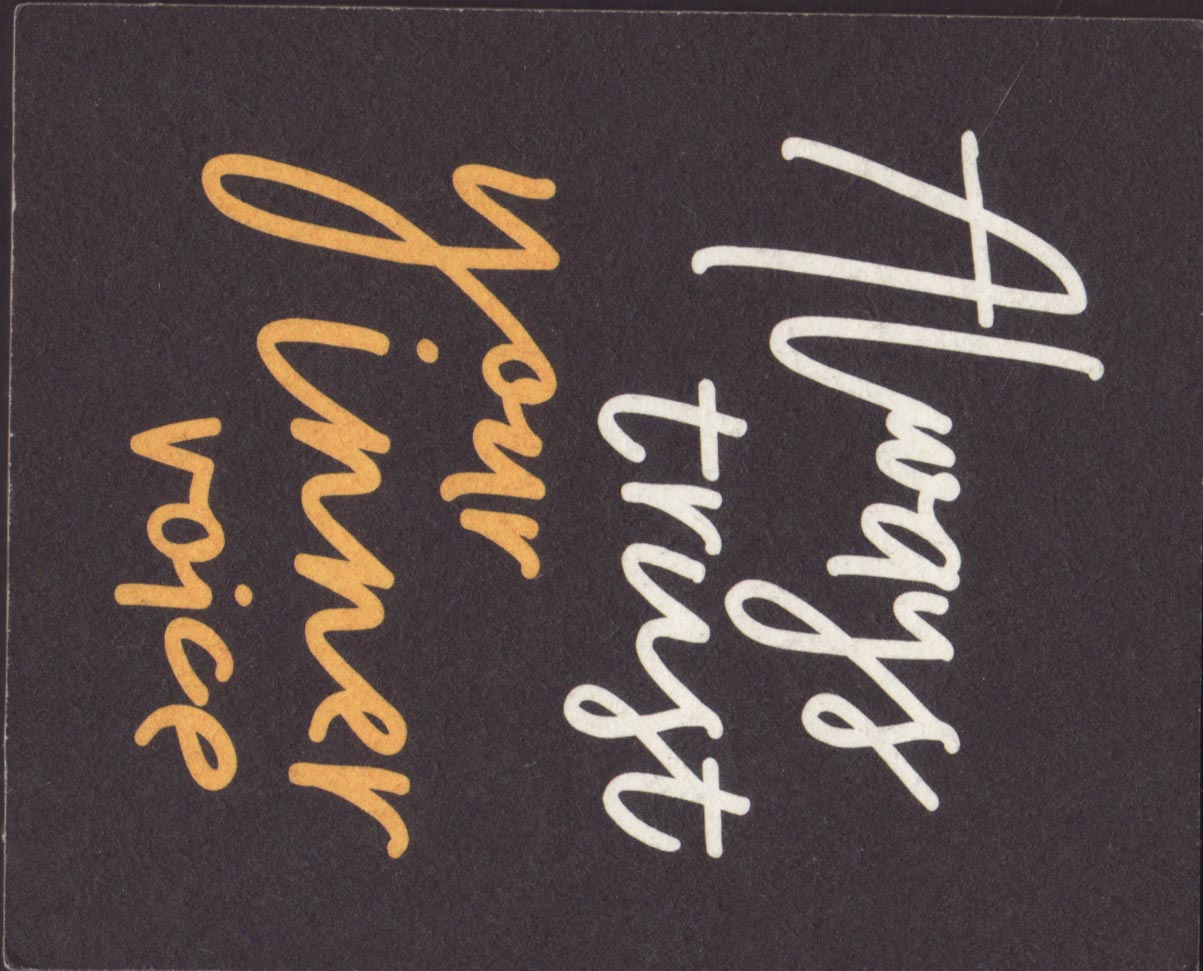 Always
trust
your
inner
voice